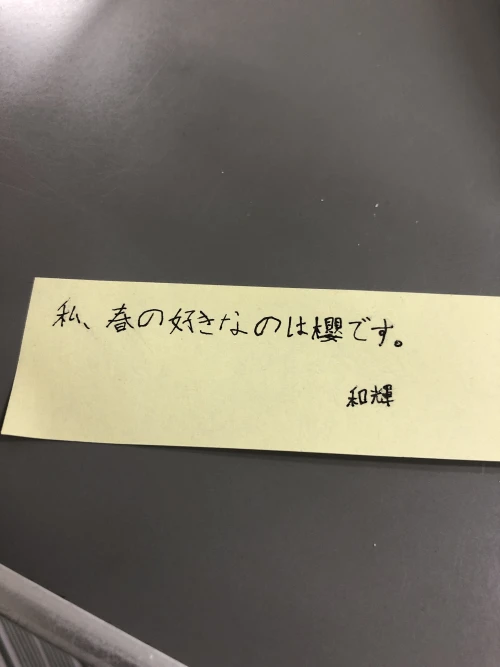 私、春の好きなのは櫻です。
和輝